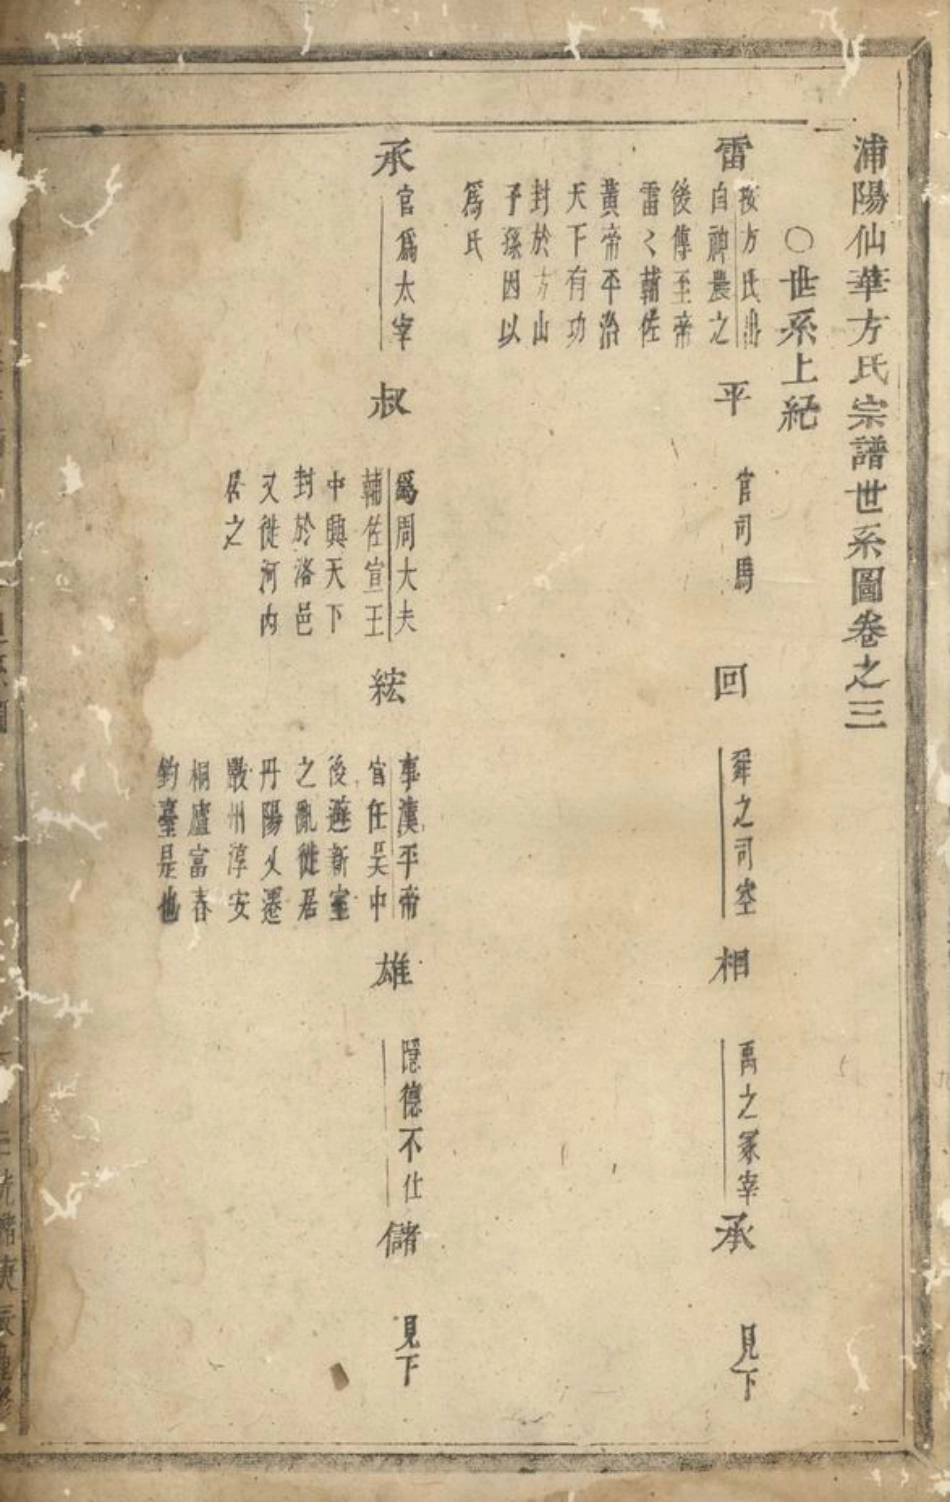 浦陽仙華方氏宗譜世系圖卷之三
○世系上紀
雷
按方氏出
自神農之
後傳至帝
雷〻輔佐
黃帝平治
天下有功
封於方山
子孫因以
爲氏
平
官司馬
回
舜之司空
相
禹之冢宰
承
見下
承
官爲太宰
叔
爲周大夫
輔佐宣王
中興天下
封於洛邑
又徙河內
居之
紘
事漢平帝
官任吳中
後避新室
之亂徙居
丹陽又遷
歙州淳安
桐廬富春
釣臺是也
雄
隱德不仕
儲
見下